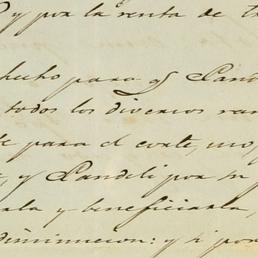 y por la renta de
hecho para q̃ Land
todos los diversos ra
para el corte, mo
y Landeli por su
y beneficiarla,
diminucion: y si por